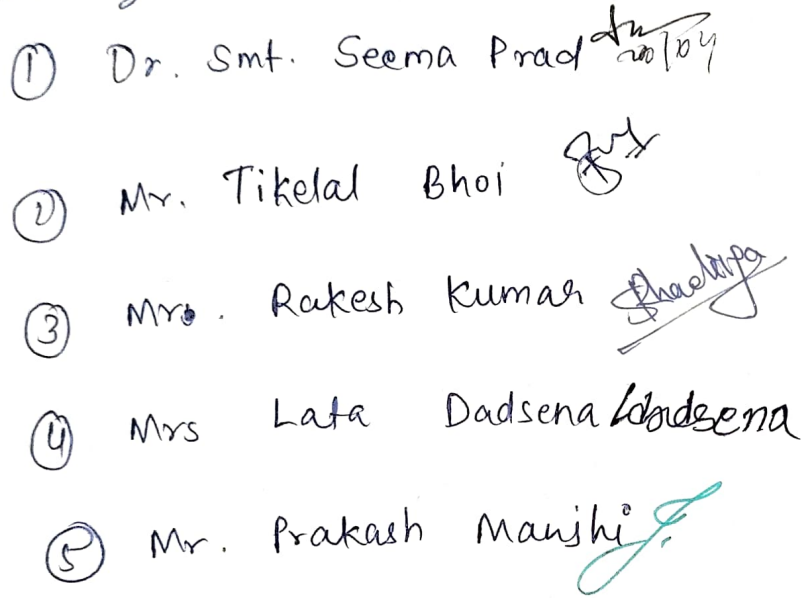 ① Dr. Smt. Seema Prad 20/04
② Mr. Tikelal Bhoi
③ Mr. Rakesh Kumar
④ Mrs Lata Dadsena Ldadsena
⑤ Mr. Prakash Manjhi